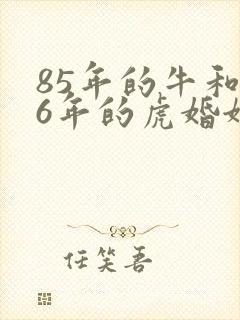 85年的牛和
6年的虎婚
任笑吾